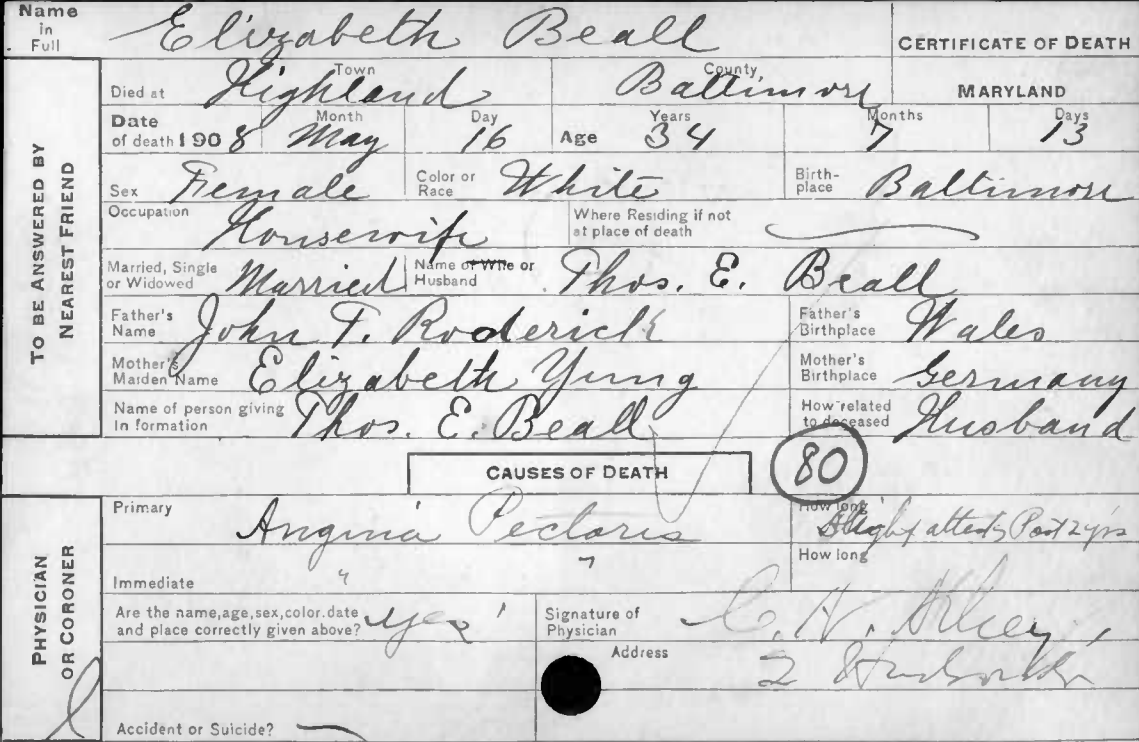 Name in Full Elizabeth Beall
CERTIFICATE OF DEATH
TO BE ANSWERED BY NEAREST FRIEND
Died at Highland Town Baltimore County, MARYLAND
Date of death 1908 Month May Day 16 Age Years 34 Months 7 Days 13
Sex Female Color or Race White Birth-place Baltimore
Occupation Housewife Where Residing if not at place of death
Married, Single or Widowed Married Name of Wife or Husband Thos. E. Beall
Father's Name John T. Roderick Father's Birthplace Wales
Mother's Maiden Name Elizabeth Yung Mother's Birthplace Germany
Name of person giving In formation Thos. E. Beall How related to deceased Husband
CAUSES OF DEATH 80
PHYSICIAN OR CORONER
Primary Angina Pectoris How long Slight attacks Past 2 yrs
Immediate " " How long
Are the name, age, sex, color. date and place correctly given above? yes Signature of Physician C. H.
Address 2
Accident or Suicide?